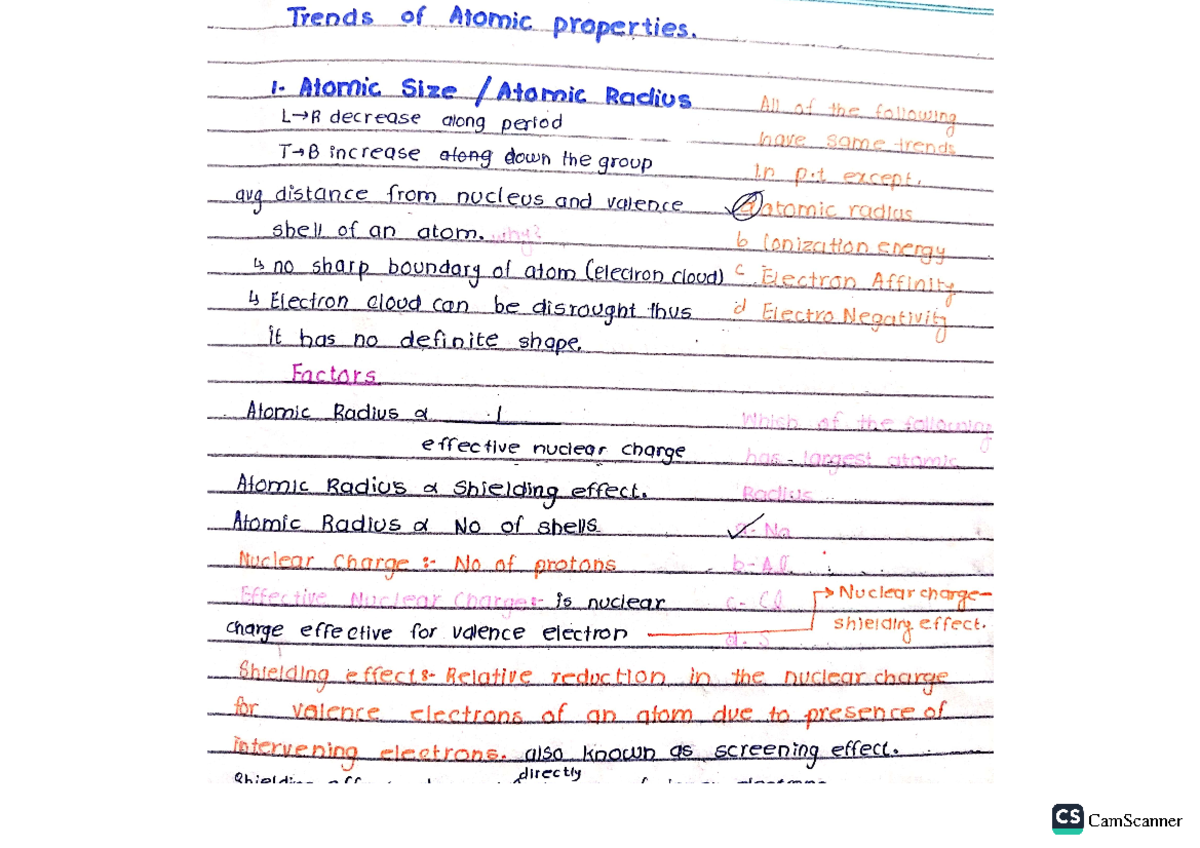 Trends of Atomic properties.
1- Atomic Size / Atomic Radius
L→R decrease along period
T→B increase along down the group
avg distance from nucleus and valence
shell of an atom. why?
↳ no sharp boundary of atom (electron cloud)
↳ Electron cloud can be disrought thus
it has no definite shape.
Factors
Atomic Radius α 1
effective nuclear charge
Atomic Radius α Shielding effect.
Atomic Radius α No of shells
Nuclear Charge :- No of protons
Effective Nuclear Charge:- is nuclear
charge effective for valence electron
Shielding effect:- Relative reduction in the nuclear charge
for valence electrons of an atom due to presence of
intervening electrons. also known as screening effect.
directly
All of the following
have same trends
In p.t except.
a atomic radius
b Ionization energy
c Electron Affinity
d Electro Negativity
Which of the following
has largest atomic
Radius
a- Na
b- Al
c- Cl
d- S
→ Nuclear charge-
shielding effect.
CS CamScanner